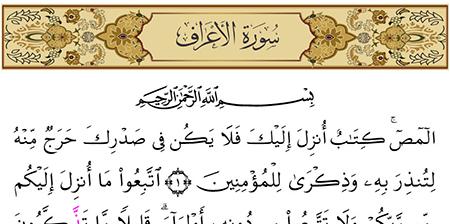 سُورَةُ الأَعْرَافِ
بِسْمِ اللَّهِ الرَّحْمَٰنِ الرَّحِيمِ
الٓمٓصٓ ۚ كِتَٰبٌ أُنزِلَ إِلَيْكَ فَلَا يَكُن فِى صَدْرِكَ حَرَجٌ مِّنْهُ
لِتُنذِرَ بِهِۦ وَذِكْرَىٰ لِلْمُؤْمِنِينَ ﴿١﴾ اتَّبِعُوا مَا أُنزِلَ إِلَيْكُم
وَلَا قَلِيلًا مَّا تَذَكَّرُونَ